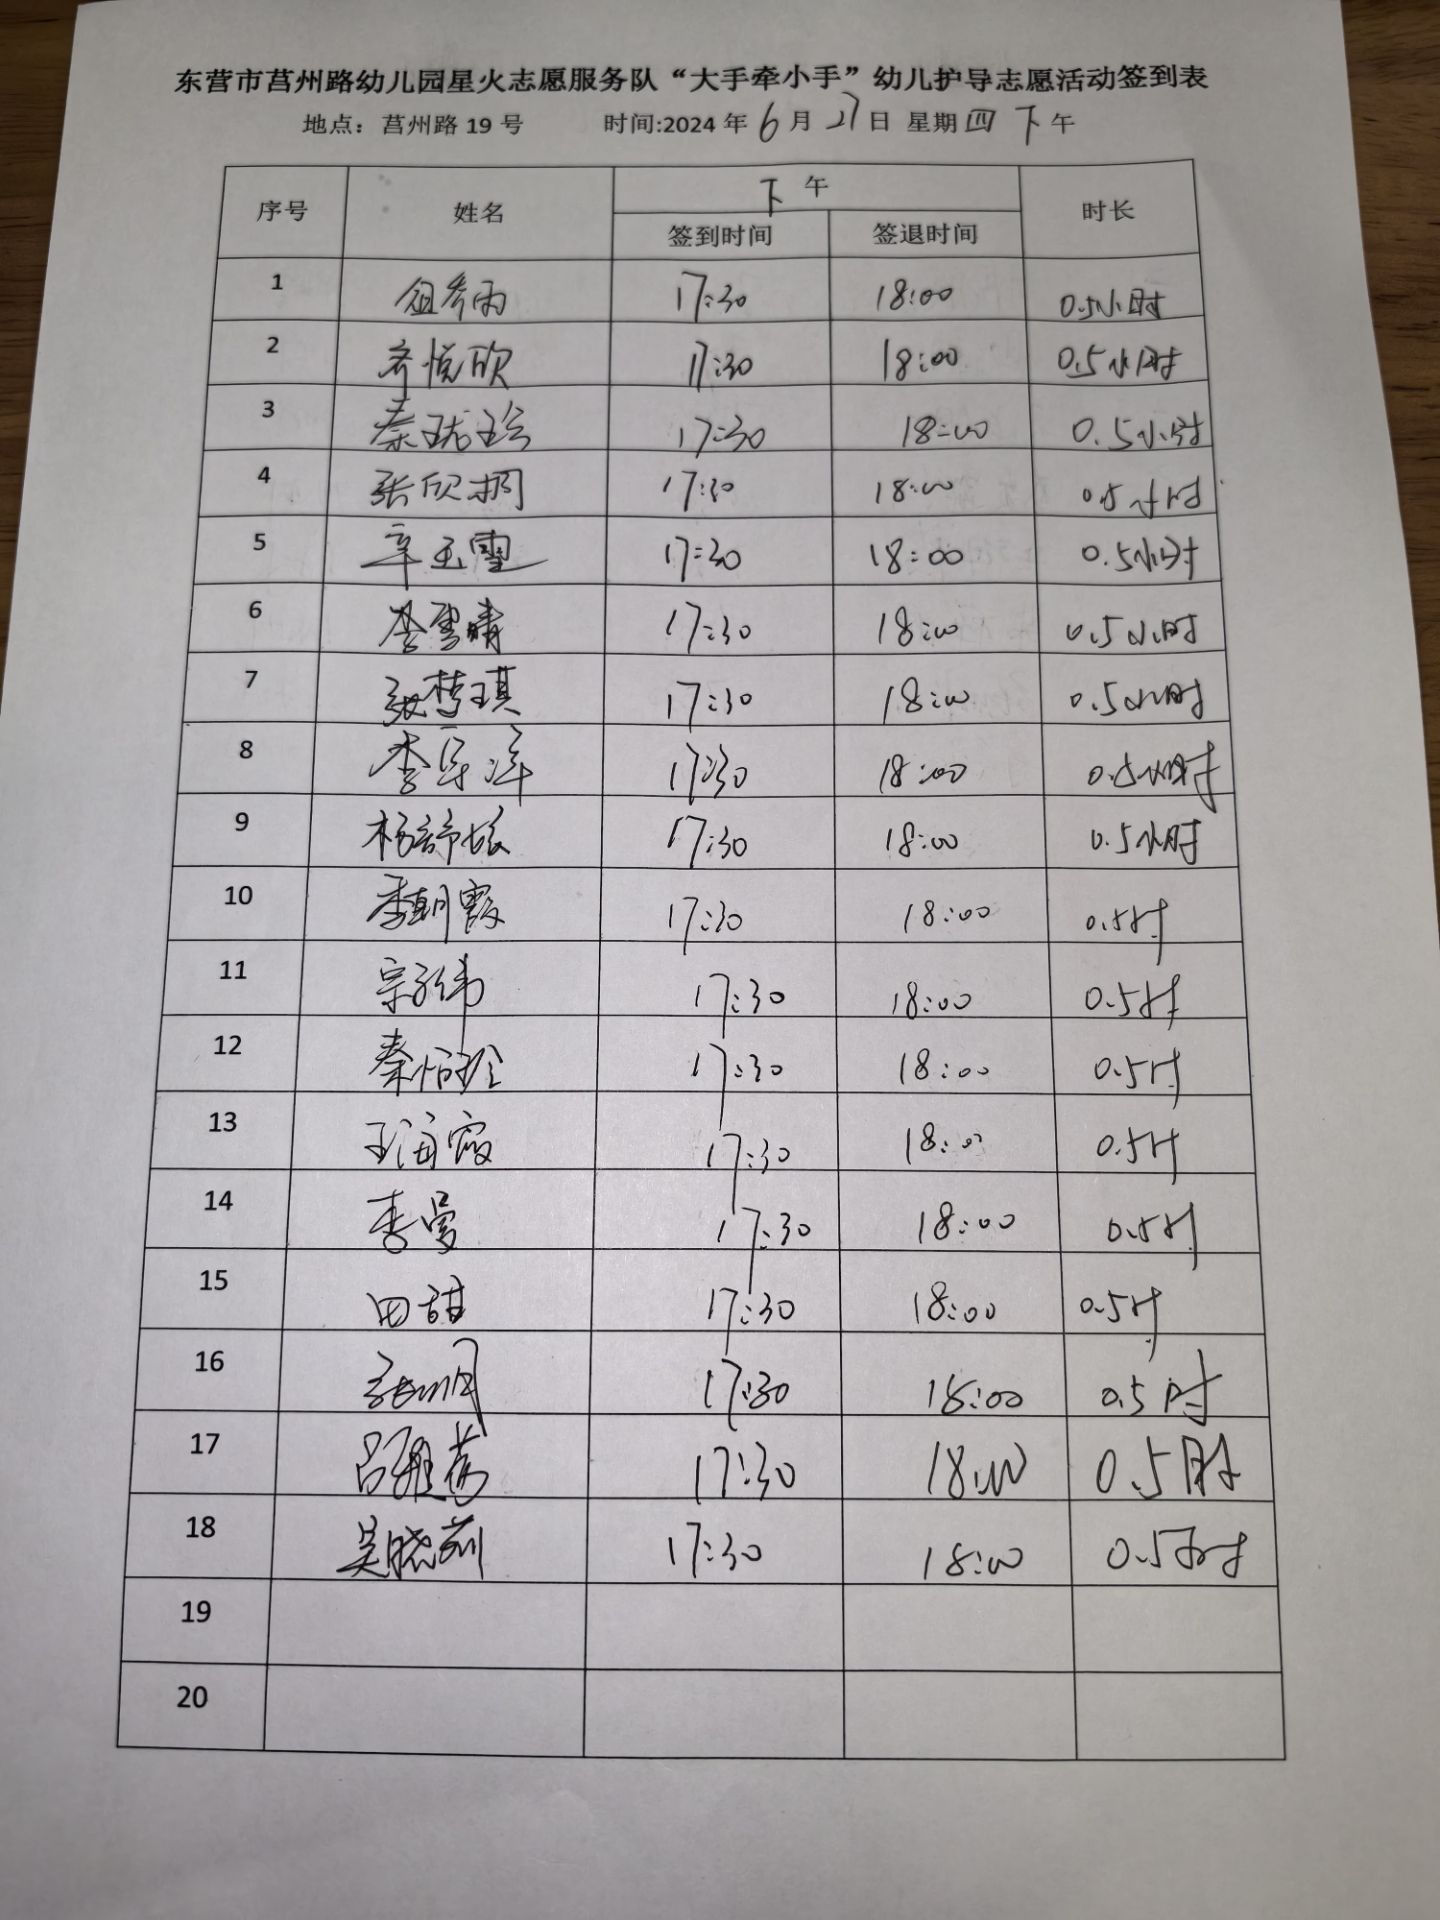 东营市莒州路幼儿园星火志愿服务队“大手牵小手”幼儿护导志愿活动签到表
地点：莒州路 19 号 时间:2024 年 6 月 27 日 星期 四 下 午
序号 姓名 下 午 时长
签到时间 签退时间
1 17:30 18:00 0.5小时
2 齐悦欣 17:30 18:00 0.5小时
3 秦珑玲 17:30 18:00 0.5小时
4 张欣桐 17:30 18:00 0.5小时
5 辛玉雪 17:30 18:00 0.5小时
6 李雪晴 17:30 18:00 0.5小时
7 张梦琪 17:30 18:00 0.5小时
8 17:30 18:00 0.5小时
9 17:30 18:00 0.5小时
10 李朝霞 17:30 18:00 0.5时
11 宗纬 17:30 18:00 0.5时
12 秦怡玲 17:30 18:00 0.5时
13 王海霞 17:30 18:00 0.5时
14 李曼 17:30 18:00 0.5时
15 田甜 17:30 18:00 0.5时
16 17:30 18:00 0.5时
17 17:30 18:00 0.5时
18 吴晓莉 17:30 18:00 0.5小时
19
20